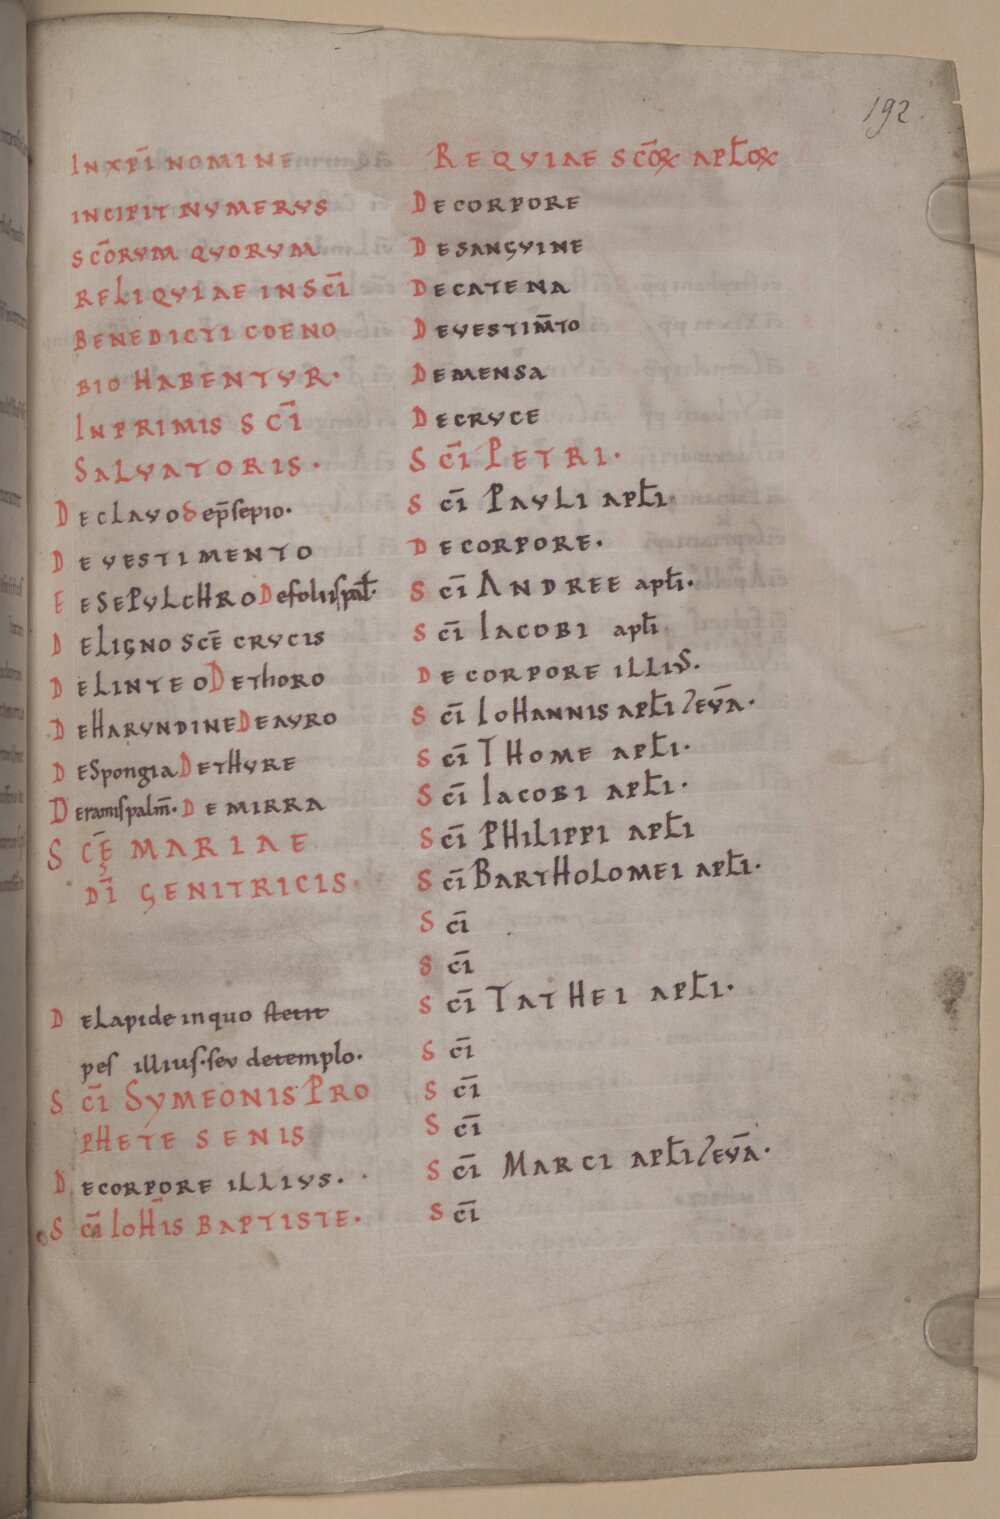 192
INXPI̅ NOMINE
INCIPIT NVMERVS
SCO̅RVM QVORVM
RELIQVIAE IN SCI̅
BENEDICTI COENO
BIO HABENTVR·
INPRIMIS SCI̅
SALVATORIS·
DE CLAVO De p̅sepio·
DE VESTIMENTO
EE SEPVLCHRO De foliis pal̅·
DE LIGNO SCE̅ CRVCIS
DE LINTEO DE THORO
DE HARVNDINE DE AVRO
DE Spongia DE THVRE
De ramis palm̅· DE MIRRA
SCE̅ MARIAE
DI̅ GENITRICIS·
DE Lapide in quo stetit
pes illius· seu de templo·
SCI̅ SYMEONIS PRO
PHETE SENIS
DE CORPORE ILLIVS·
SCI̅ IOHI̅S BAPTISTE·
REQVIAE SCO̅Ꝝ APL̅OꝜ
DE CORPORE
DE SANGVINE
DE CATENA
DE VESTIM̅TO
DE MENSA
DE CRVCE
SCI̅ PETRI·
SCI̅ PAVLI APL̅I·
DE CORPORE·
SCI̅ ANDREE apl̅i·
SCI̅ IACOBI apl̅i
DE CORPORE ILLIVS·
SCI̅ IOHANNIS APL̅I ⁊ EVA̅·
SCI̅ THOME APL̅I·
SCI̅ IACOBI APL̅I·
SCI̅ PHILIPPI APL̅I
SCI̅ BARTHOLOMEI APL̅I·
SCI̅
SCI̅
SCI̅ TATHEI APL̅I·
SCI̅
SCI̅
SCI̅
SCI̅ MARCI APL̅I ⁊ EVA̅·
SCI̅